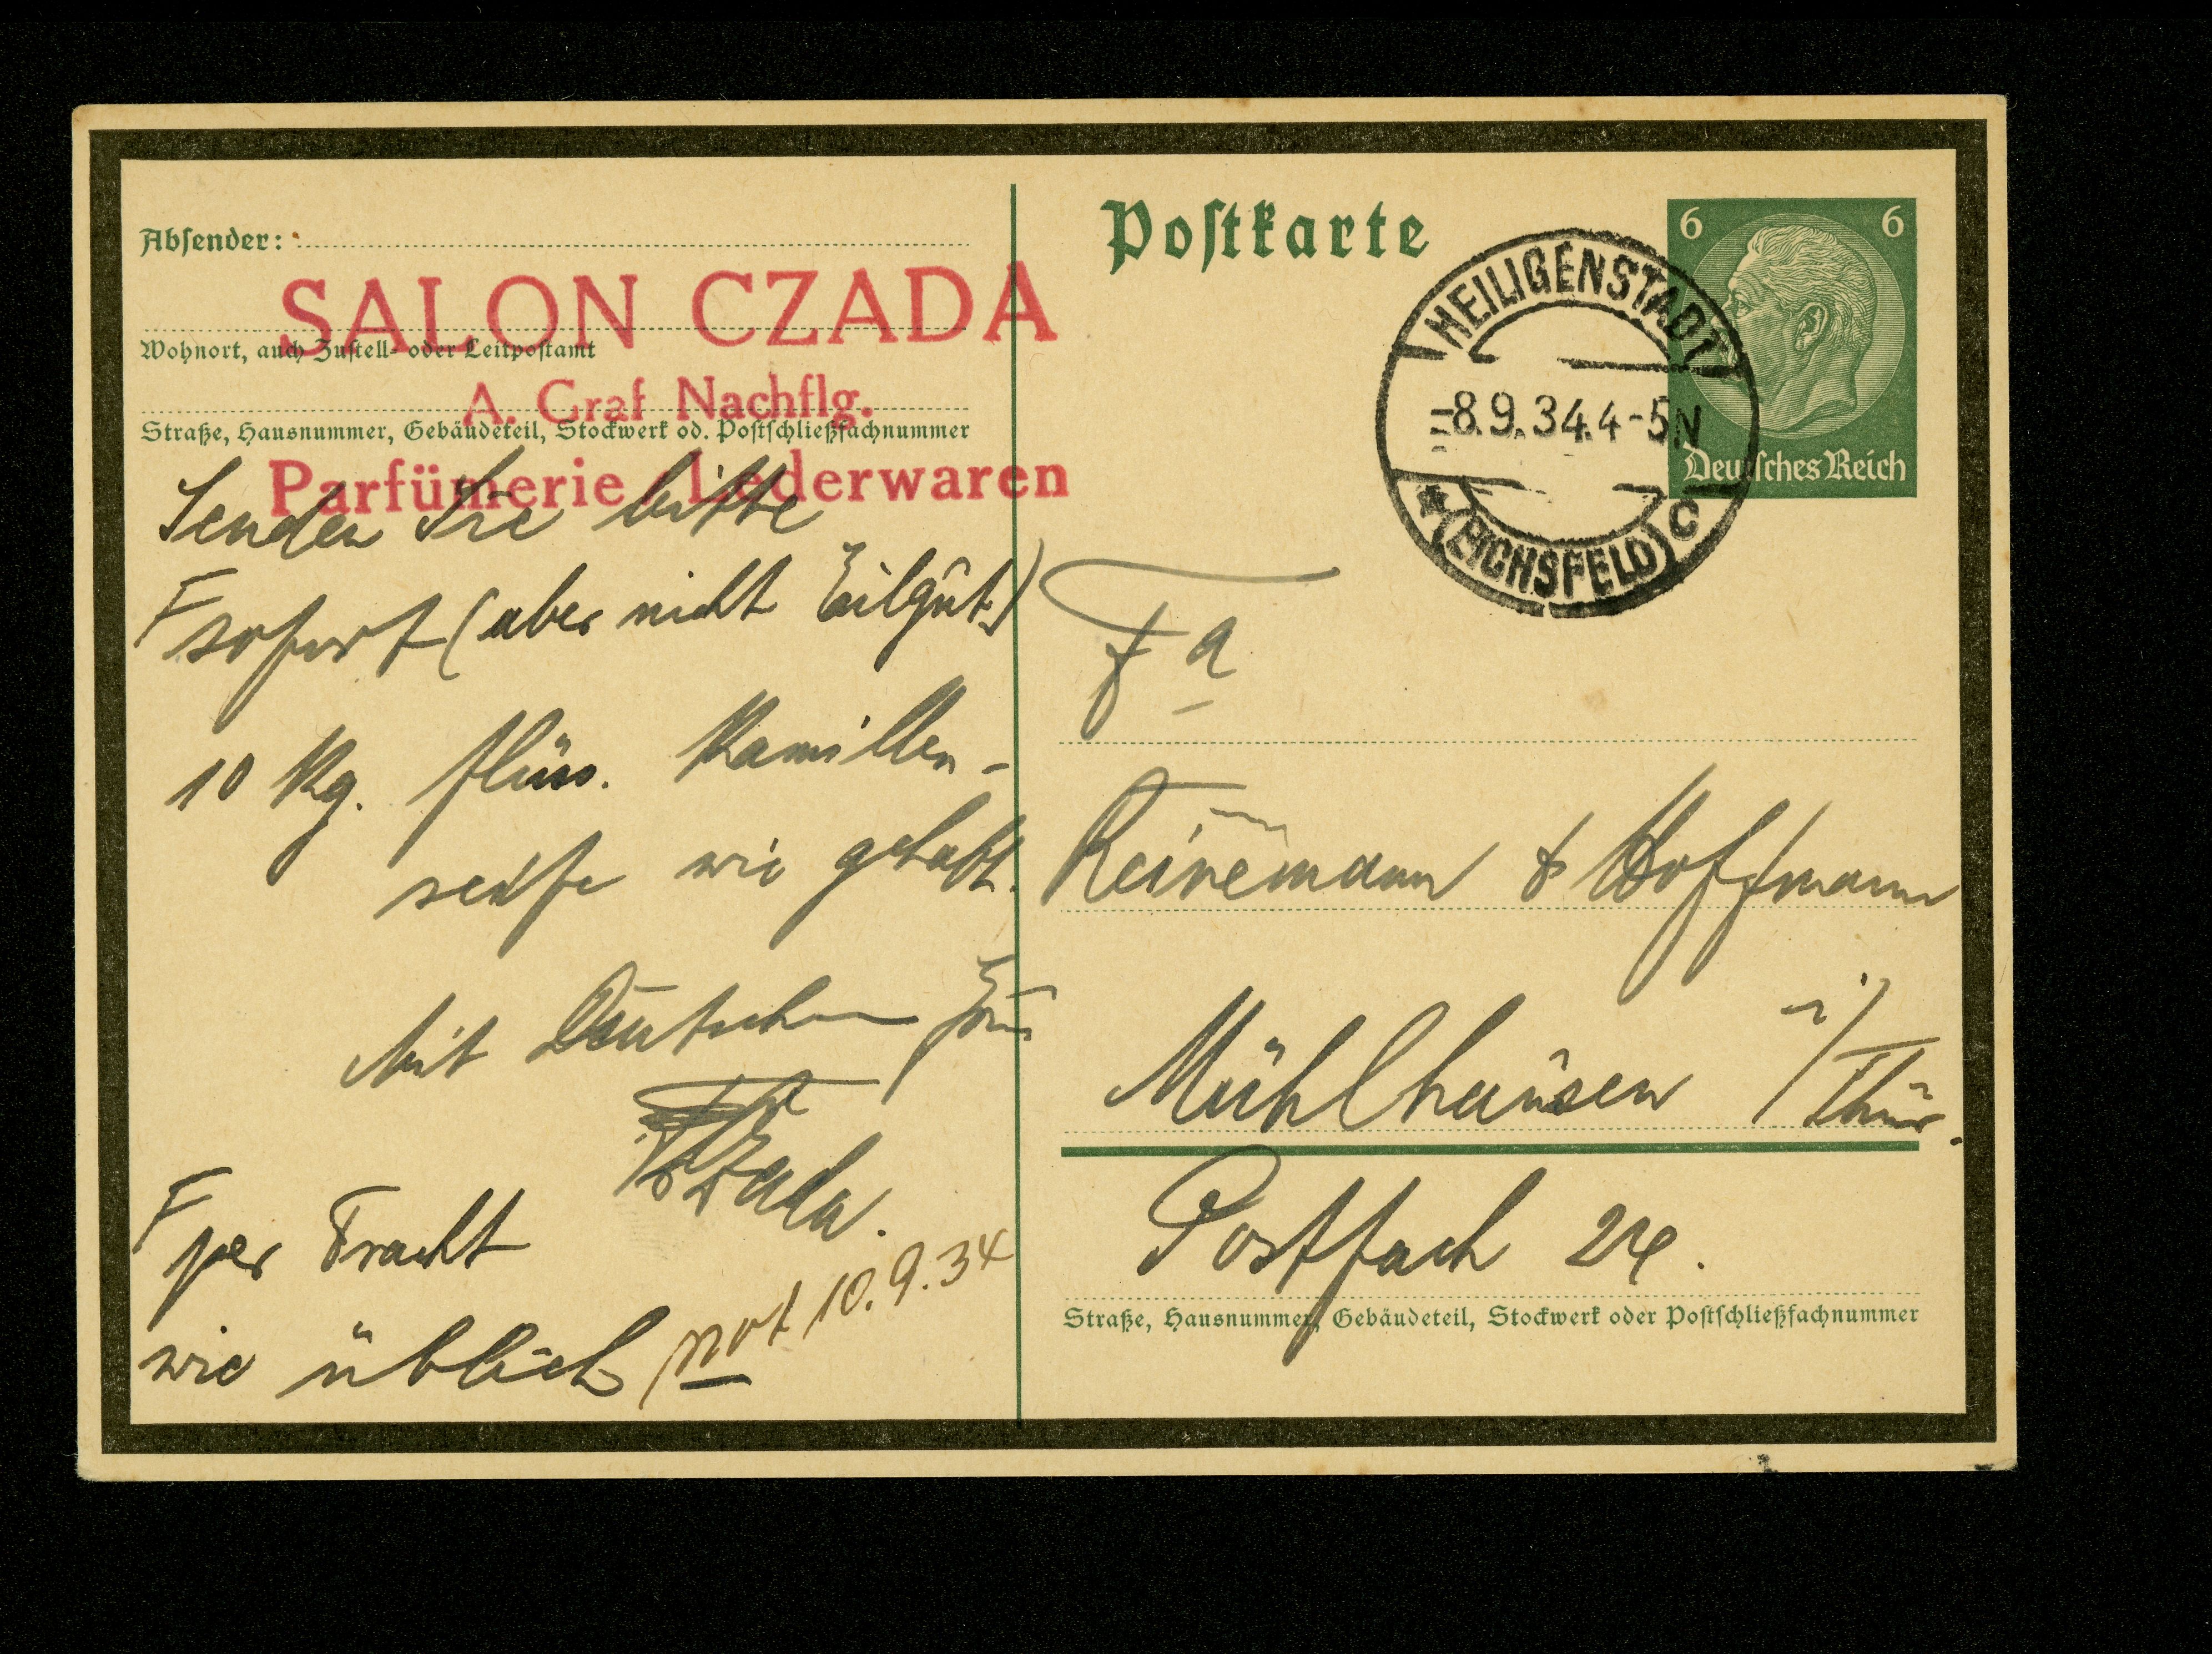 Absender:
SALON CZADA
Wohnort, auch Zustell- oder Leitpostamt
A. Graf Nachflg.
Straße, Hausnummer, Gebäudeteil, Stockwerk od. Postschließfachnummer
Parfümerie / Lederwaren
Senden Sie bitte
sofort (aber nicht Eilgut)
10 Kg. flüss. Kamillen-
seife wie gehabt.
Mit Deutschem
Czada.
per Fracht
wie üblich
not 10.9.34
Postkarte
6 6
Deutsches Reich
HEILIGENSTADT
-8.9.34.4-5N
* (EICHSFELD) C
Fa
Reinemann & Hoffmann
Mühlhausen i/Thür.
Postfach
Straße, Hausnummer, Gebäudeteil, Stockwerk oder Postschließfachnummer